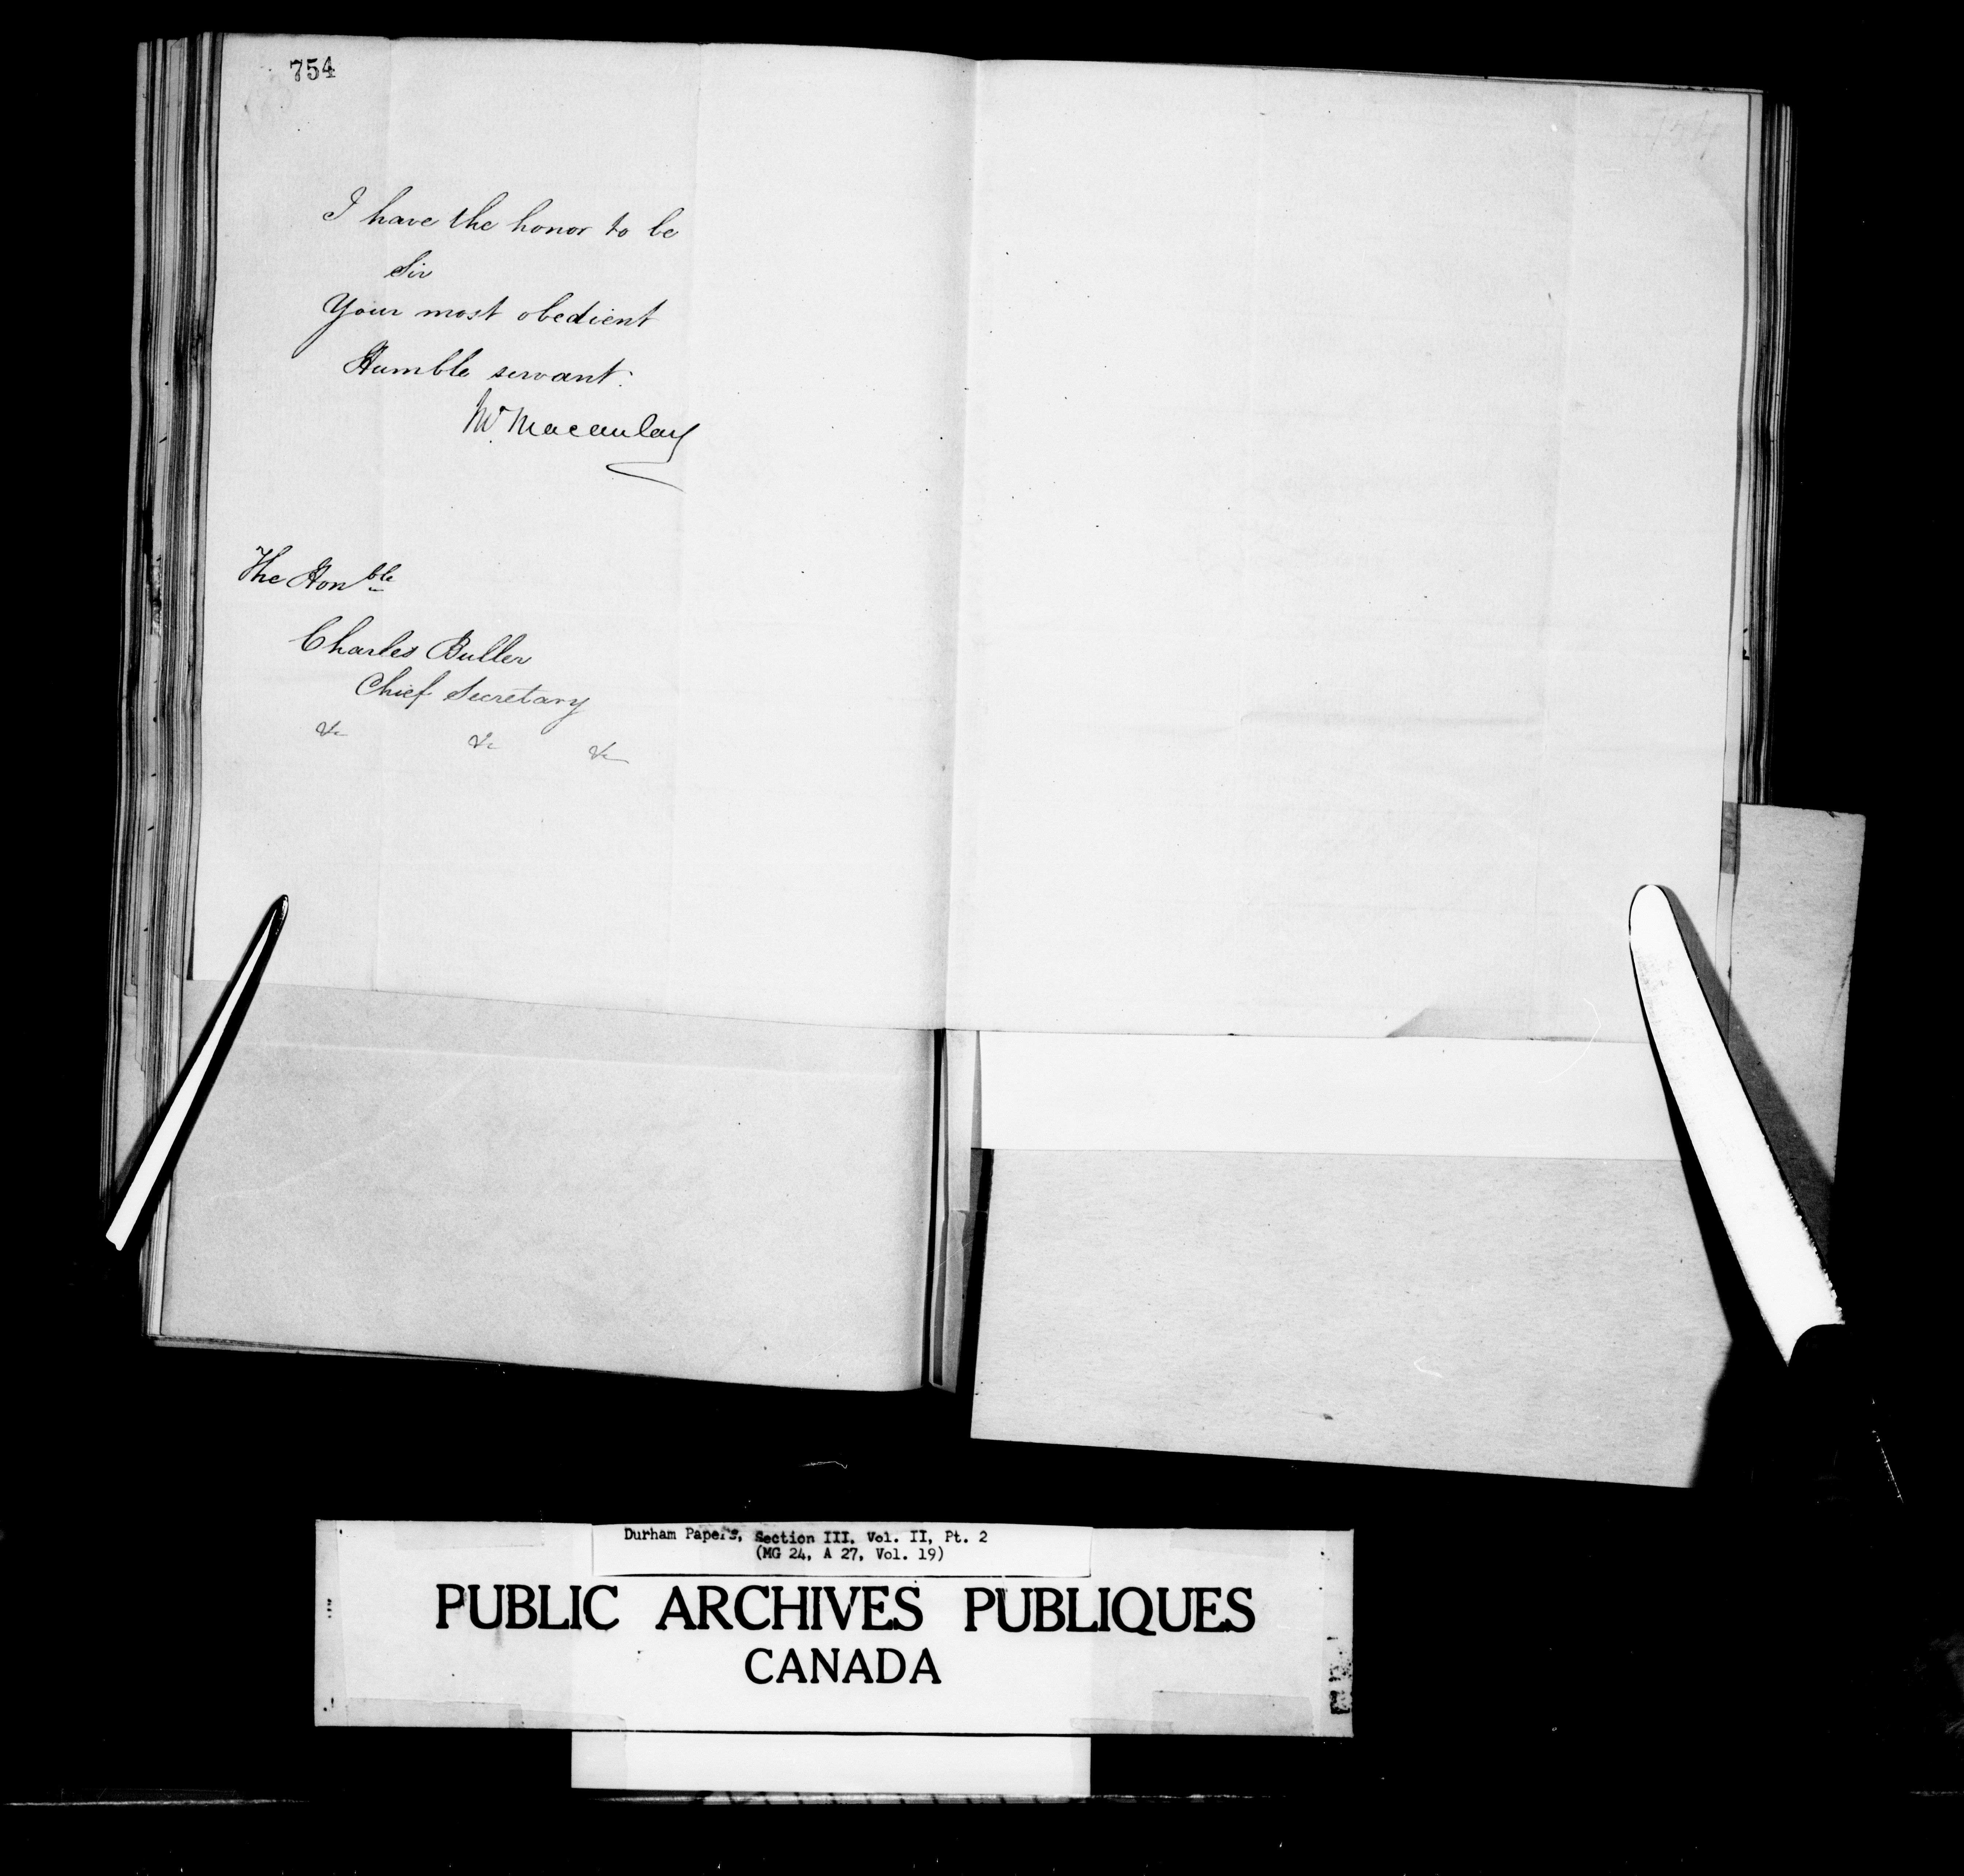 754
I have the honor to be
Sir
Your most obedient
Humble servant.
Macaulay
The Honble
Charles Buller
Chief Secretary
&c &c &c
Durham Papers, Section III, Vol. II, Pt. 2
(MG 24, A 27, Vol. 19)
PUBLIC ARCHIVES PUBLIQUES
CANADA